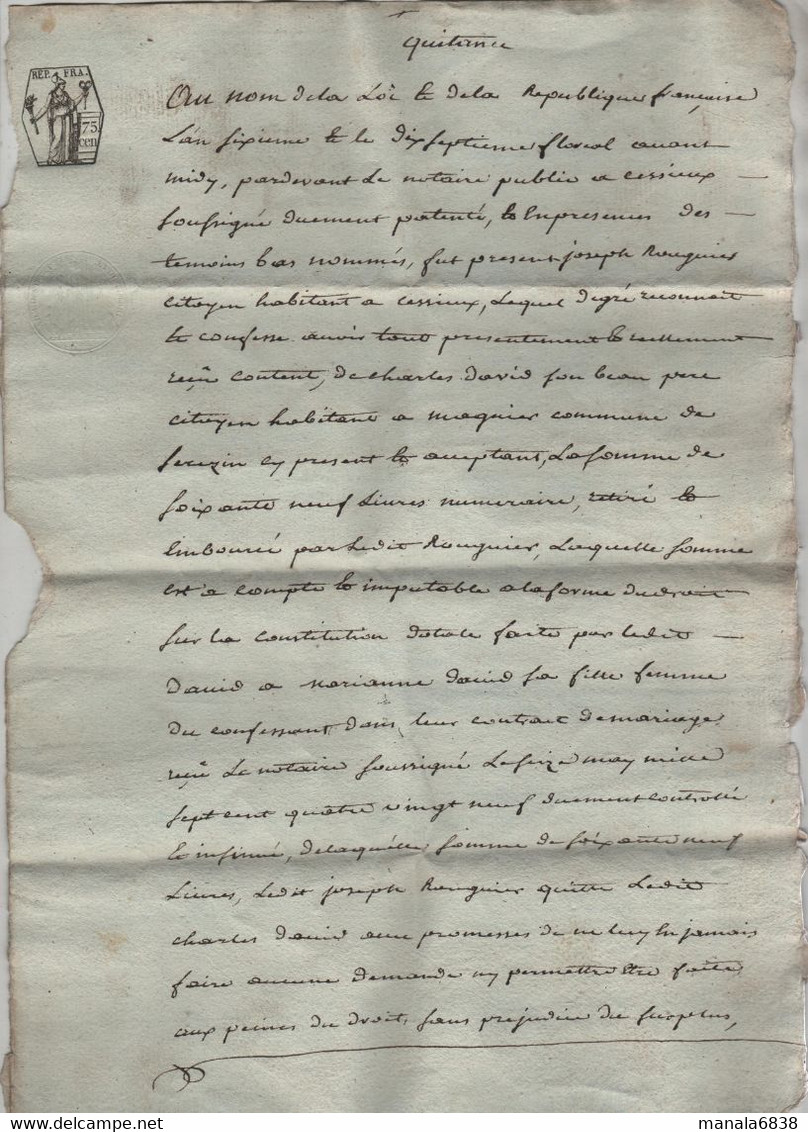 quitance
REP. FRA.
75 cen
Au nom de la Loi & de la Republique françoise
L'an sixieme & le dix septieme floreal avant
midy, pardevant Le notaire public a cessieux
soussigné duement patenté, & En presence des
temoins bas nommés, fut present joseph Rouguier
citoyen habitant a cessieux, Lequel de gré reconnoit
& confesse avoir tout presentement & reellement
reçû content, de charles david son beau pere
citoyen habitant a magnier commune de
serezin cy present & aceptant, La somme de
soixante neuf Livres numeraire, retiré &
Emboursé par Ledit Rouguier, Laquelle somme
est a compte & imputable a la forme du droit
sur la constitution dotale faite par ledit
david a marianne david sa fille femme
du confessant dans leur contrat de mariage
reçû Le notaire soussigné Le seize may mille
sept cent quatre vingt neuf duement controllé
& insinué, de laquelle somme de soixante neuf
Livres, Ledit joseph Rouguier quitte Ledit
charles david avec promesses de ne luy En jamais
faire aucune demande ny permettre Etre faite
aux peines du droit, sans prejudice du surplus,
manala6838